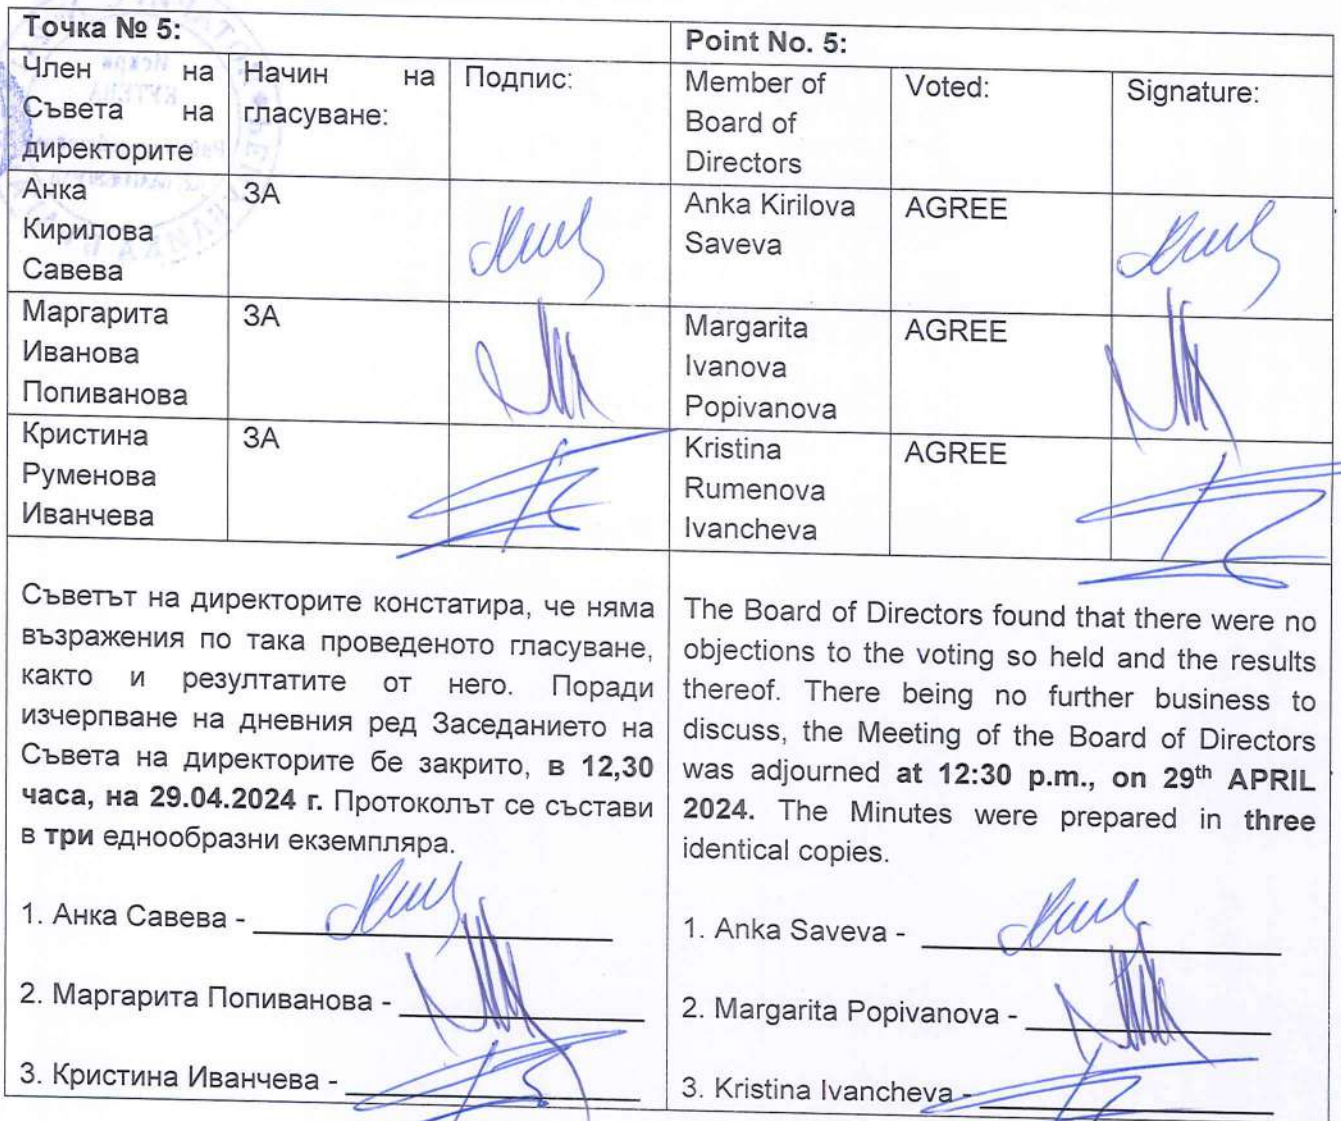 Точка № 5:
Член на Начин на Подпис:
Съвета на гласуване:
директорите
Анка ЗА
Кирилова
Савева
Маргарита ЗА
Иванова
Попиванова
Кристина ЗА
Руменова
Иванчева
Съветът на директорите констатира, че няма
възражения по така проведеното гласуване,
както и резултатите от него. Поради
изчерпване на дневния ред Заседанието на
Съвета на директорите бе закрито, в 12,30
часа, на 29.04.2024 г. Протоколът се състави
в три еднообразни екземпляра.
1. Анка Савева -
2. Маргарита Попиванова -
3. Кристина Иванчева -
Point No. 5:
Member of Voted: Signature:
Board of
Directors
Anka Kirilova AGREE
Saveva
Margarita AGREE
Ivanova
Popivanova
Kristina AGREE
Rumenova
Ivancheva
The Board of Directors found that there were no
objections to the voting so held and the results
thereof. There being no further business to
discuss, the Meeting of the Board of Directors
was adjourned at 12:30 p.m., on 29th APRIL
2024. The Minutes were prepared in three
identical copies.
1. Anka Saveva -
2. Margarita Popivanova -
3. Kristina Ivancheva -